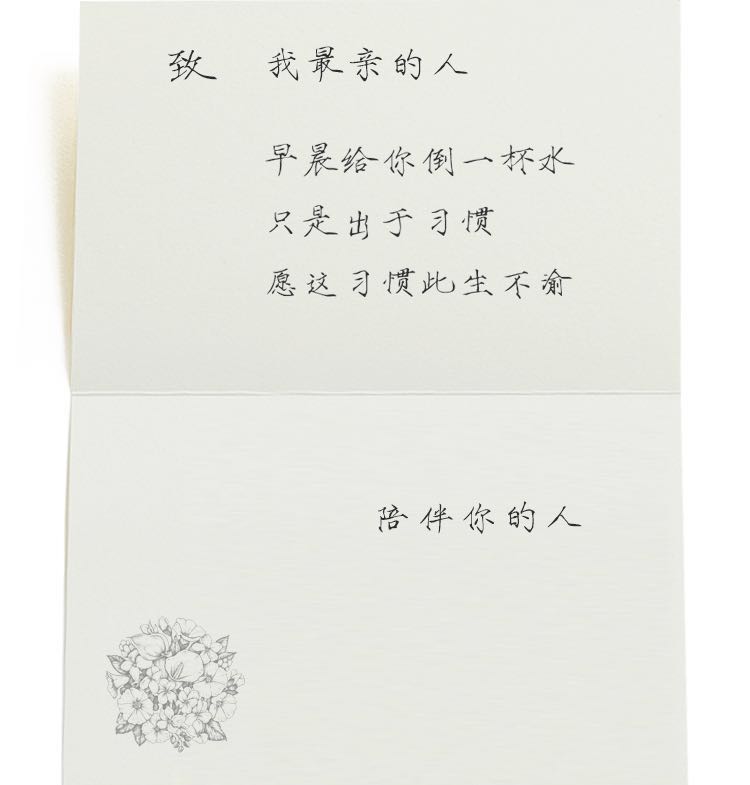 致 我最亲的人
早晨给你倒一杯水
只是出于习惯
愿这习惯此生不渝
陪伴你的人